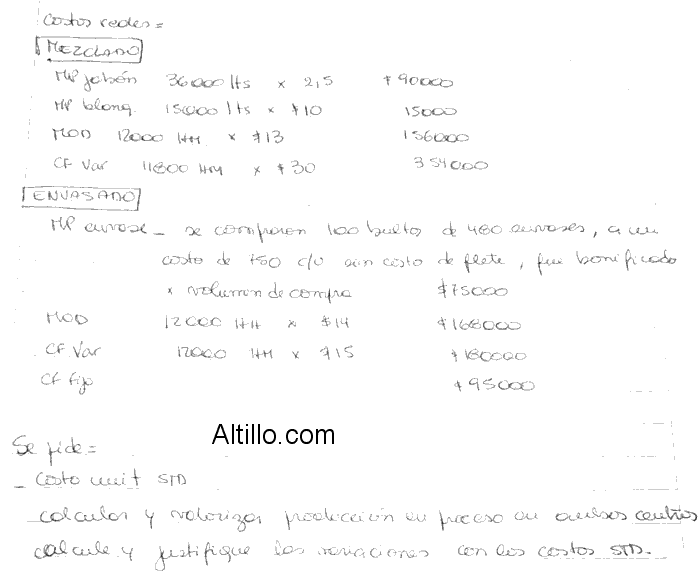 Costos reales =
MEZCLADO
MP jabón 36000 lts x 2,5 $90000
MP blanq. 15000 lts x $10 15000
MOD 12000 HH x $13 156000
CF Var 11800 HM x $30 354000
ENVASADO
MP envase - se compraron 100 bultos de 480 envases, a un
costo de $50 c/u sin costo de flete, fue bonificado
x volumen de compra $75000
MOD 12000 HH x $14 $168000
CF Var 12000 HM x $15 $180000
CF fijo $95000
Altillo.com
Se pide =
- Costo unit STD
calcular y valorizar producción en proceso en ambos centros
calcule y justifique las variaciones con los costos STD.